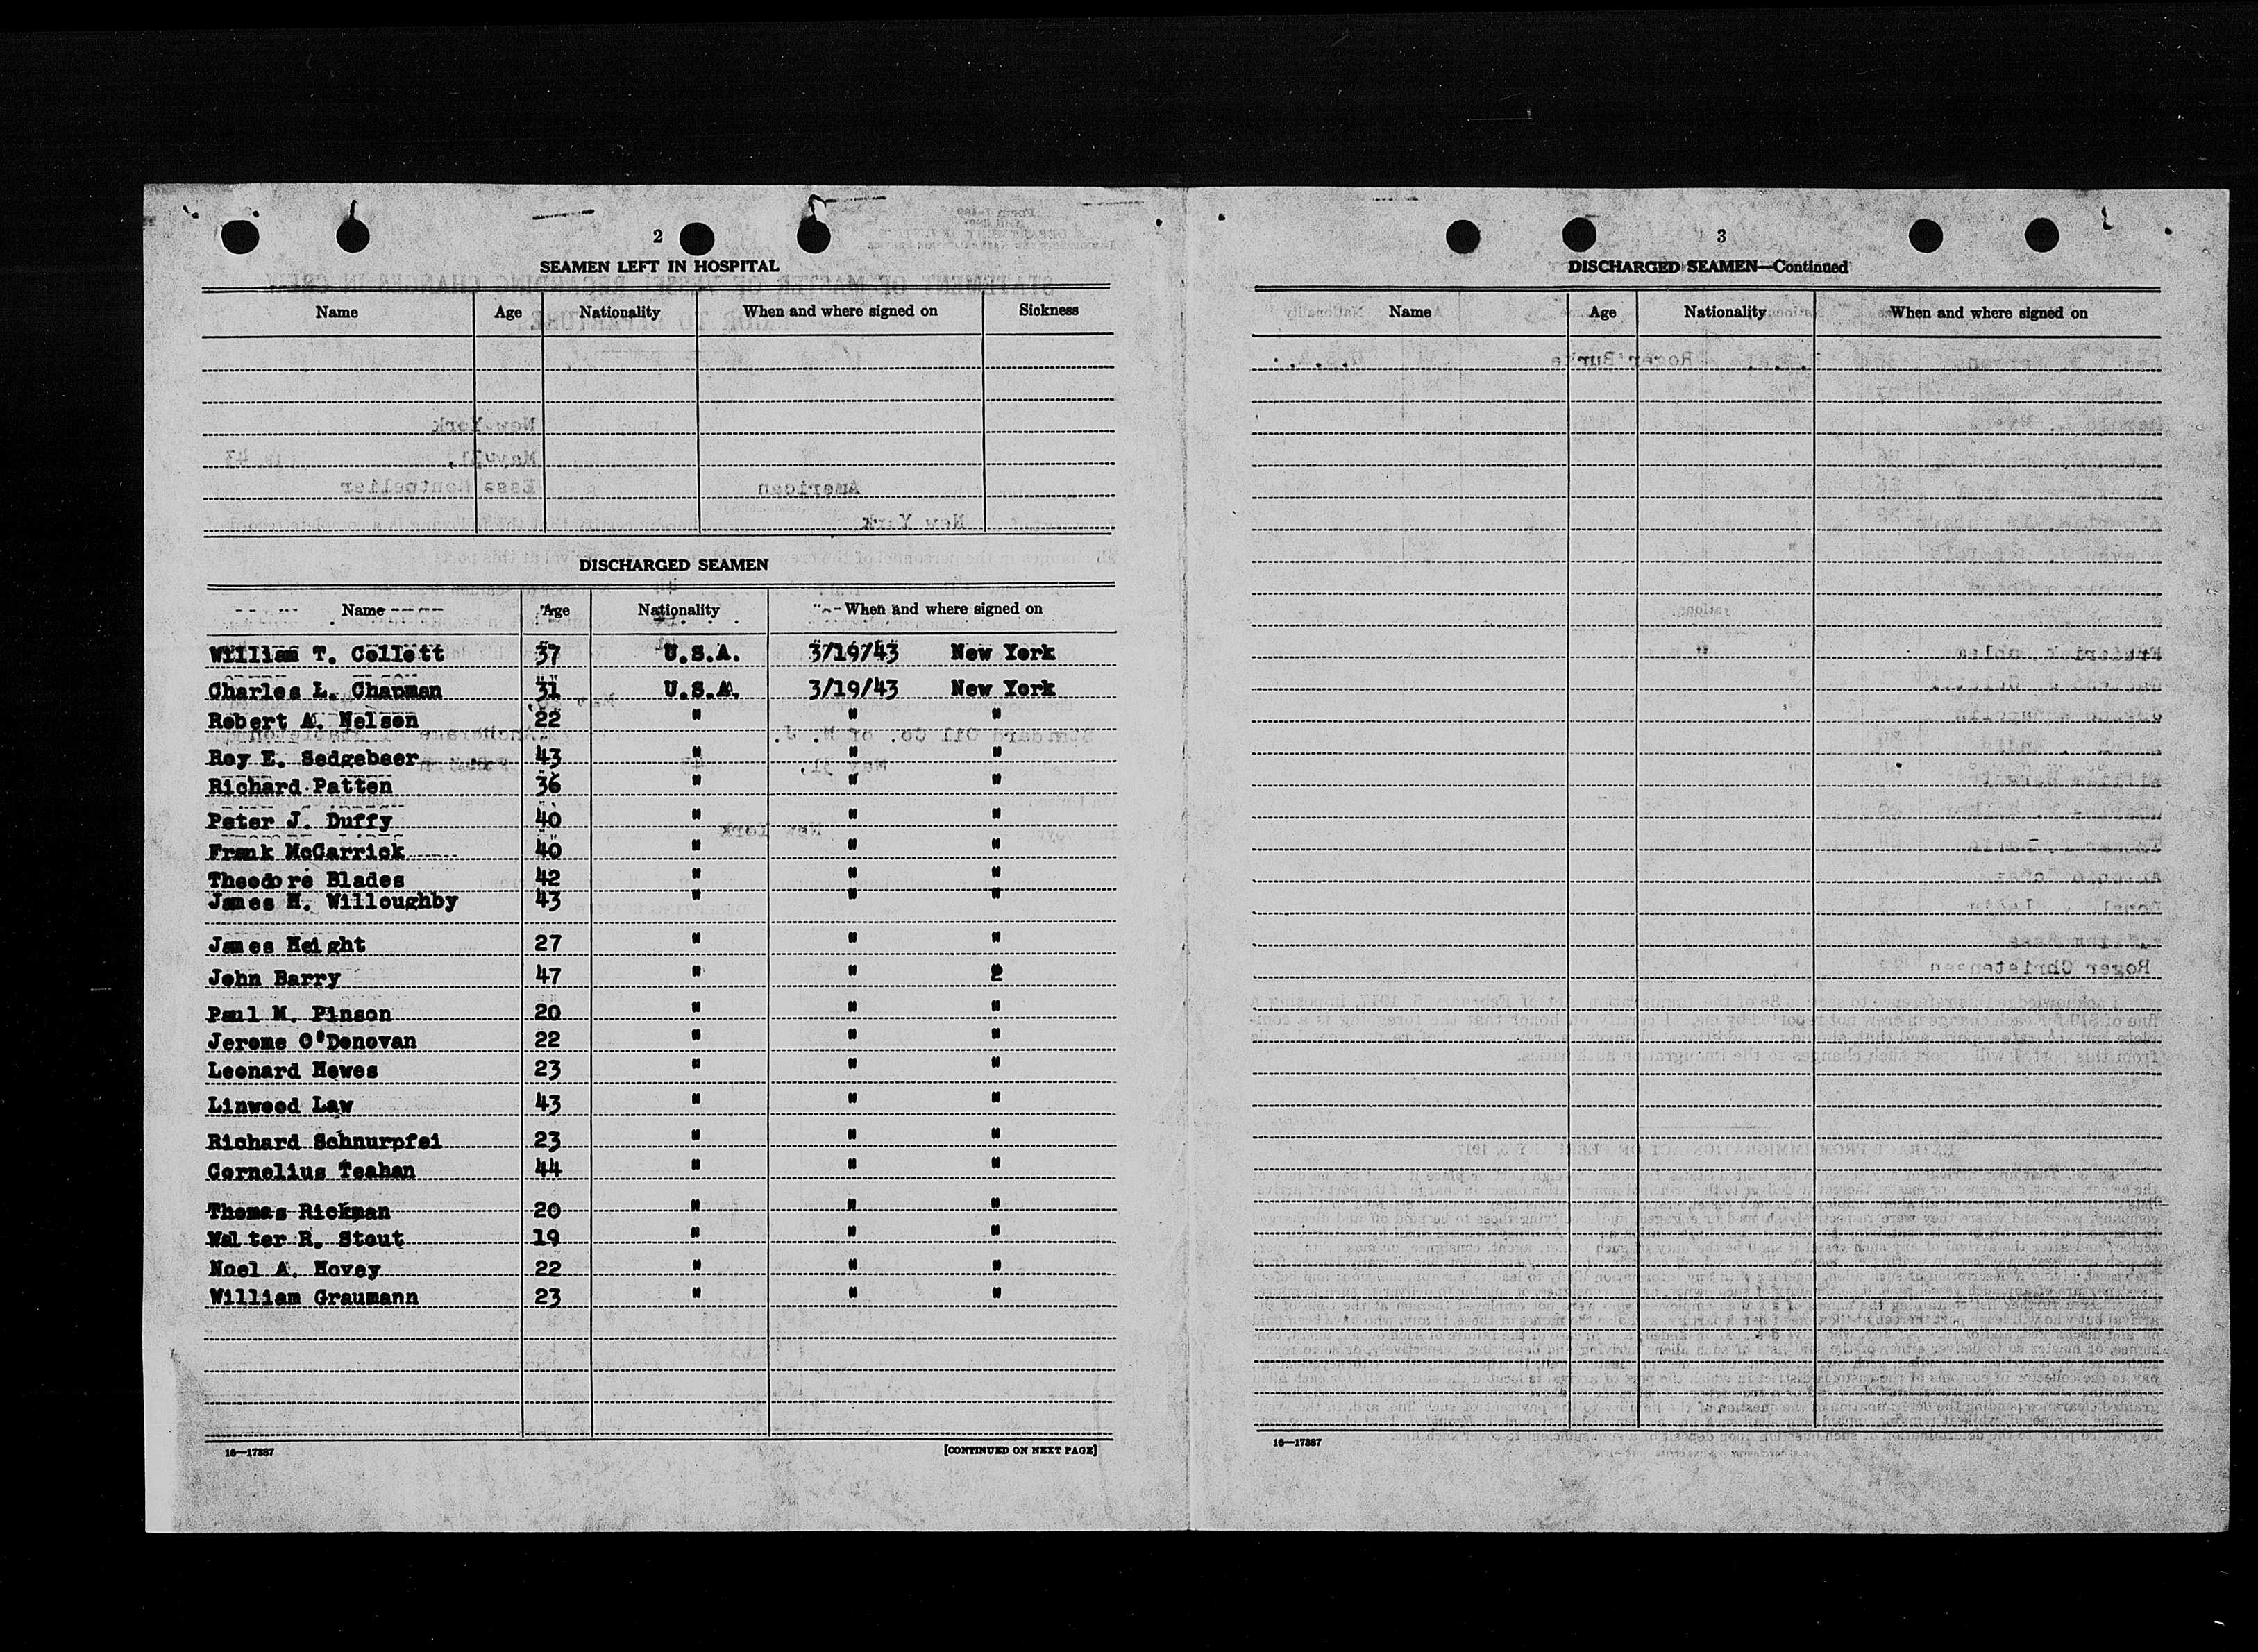 2
SEAMEN LEFT IN HOSPITAL
Name Age Nationality When and where signed on Sickness
DISCHARGED SEAMEN
Name Age Nationality When and where signed on
William T. Collett 37 U.S.A. 3/19/43 New York
Charles L. Chapman 31 U.S.A. 3/19/43 New York
Robert A. Nelson 22 " " "
Ray E. Sedgebeer 43 " " "
Richard Patten 36 " " "
Peter J. Duffy 40 " " "
Frank McCarrick 40 " " "
Theodore Blades 42 " " "
James H. Willoughby 43 " " "
James Height 27 " " "
John Barry 47 " " 2
Paul M. Pinson 20 " " "
Jerome O'Donovan 22 " " "
Leonard Hewes 23 " " "
Linwood Law 43 " " "
Richard Schnurpfei 23 " " "
Cornelius Teahan 44 " " "
Thomas Rickman 20 " " "
Walter R. Stout 19 " " "
Noel A. Hovey 22 " " "
William Graumann 23 " " "
16—17387 [CONTINUED ON NEXT PAGE]
3
DISCHARGED SEAMEN—Continued
Name Age Nationality When and where signed on
16—17387